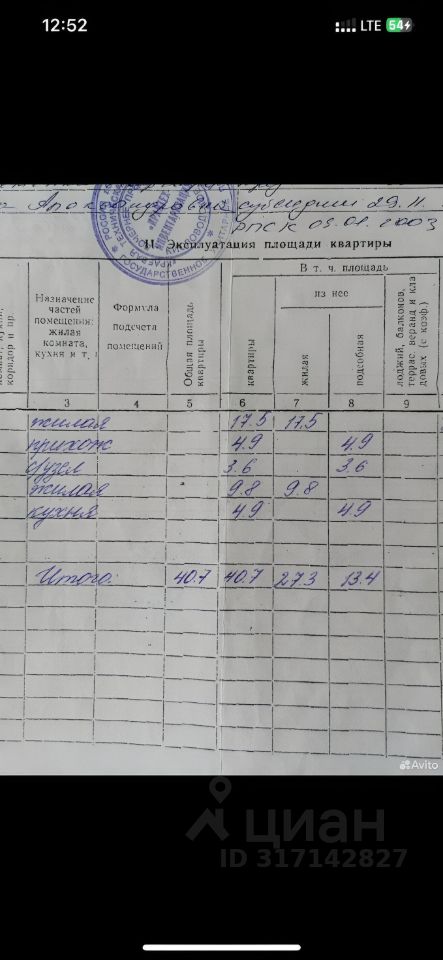 12:52
LTE 54
субсидии 29.11.
05.01.2003
II. Эксплуатация площади квартиры
коридор и пр.
Назначение частей помещения: жилая комната, кухня и т.
Формула подсчета помещений
Общая площадь квартиры
В т. ч. площадь
квартиры
из нее
жилая
подсобная
лоджий, балконов, террас, веранд и кладовых (с коэф.)
3 4 5 6 7 8 9
жилая 17.5 17.5
прихож 4.9 4.9
с/узел 3.6 3.6
жилая 9.8 9.8
кухня 4.9 4.9
Итого: 40.7 40.7 27.3 13.4
Avito
циан
ID 317142827